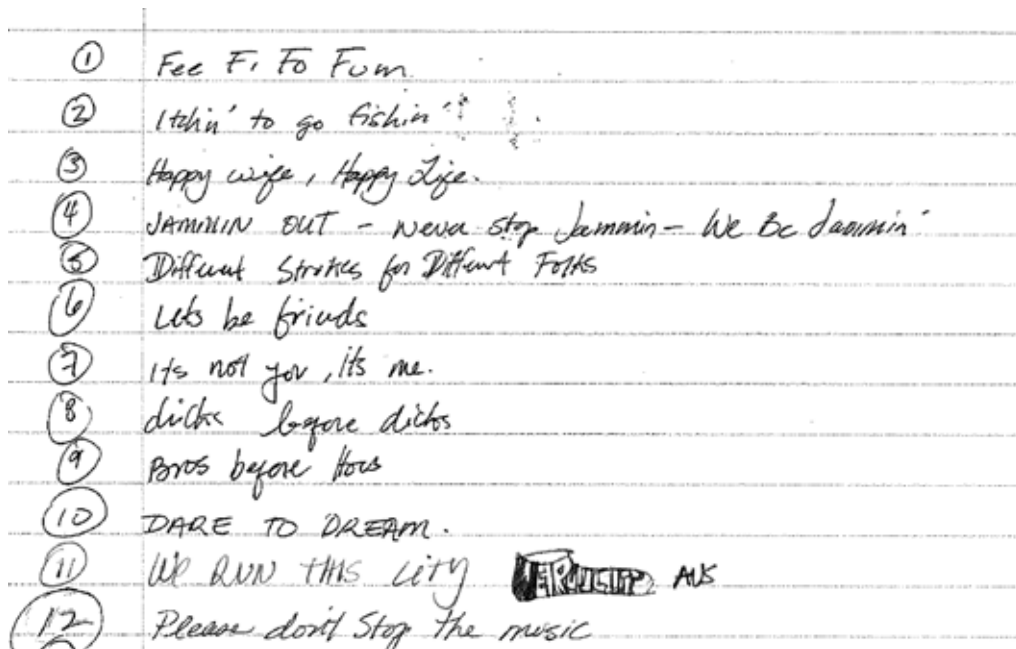 ① Fee Fi Fo Fum
② Itchin' to go fishin'
③ Happy wife, Happy Life.
④ JAMMIN OUT - Never stop Jammin - We Be Jammin'
⑤ Different Strokes for Different Folks
⑥ Lets be friends
⑦ Its not you, its me.
⑧ dicks before dicks
⑨ Bros before Hoes
⑩ DARE TO DREAM.
⑪ We RUN THIS CITY AUS
⑫ Please don't Stop the music